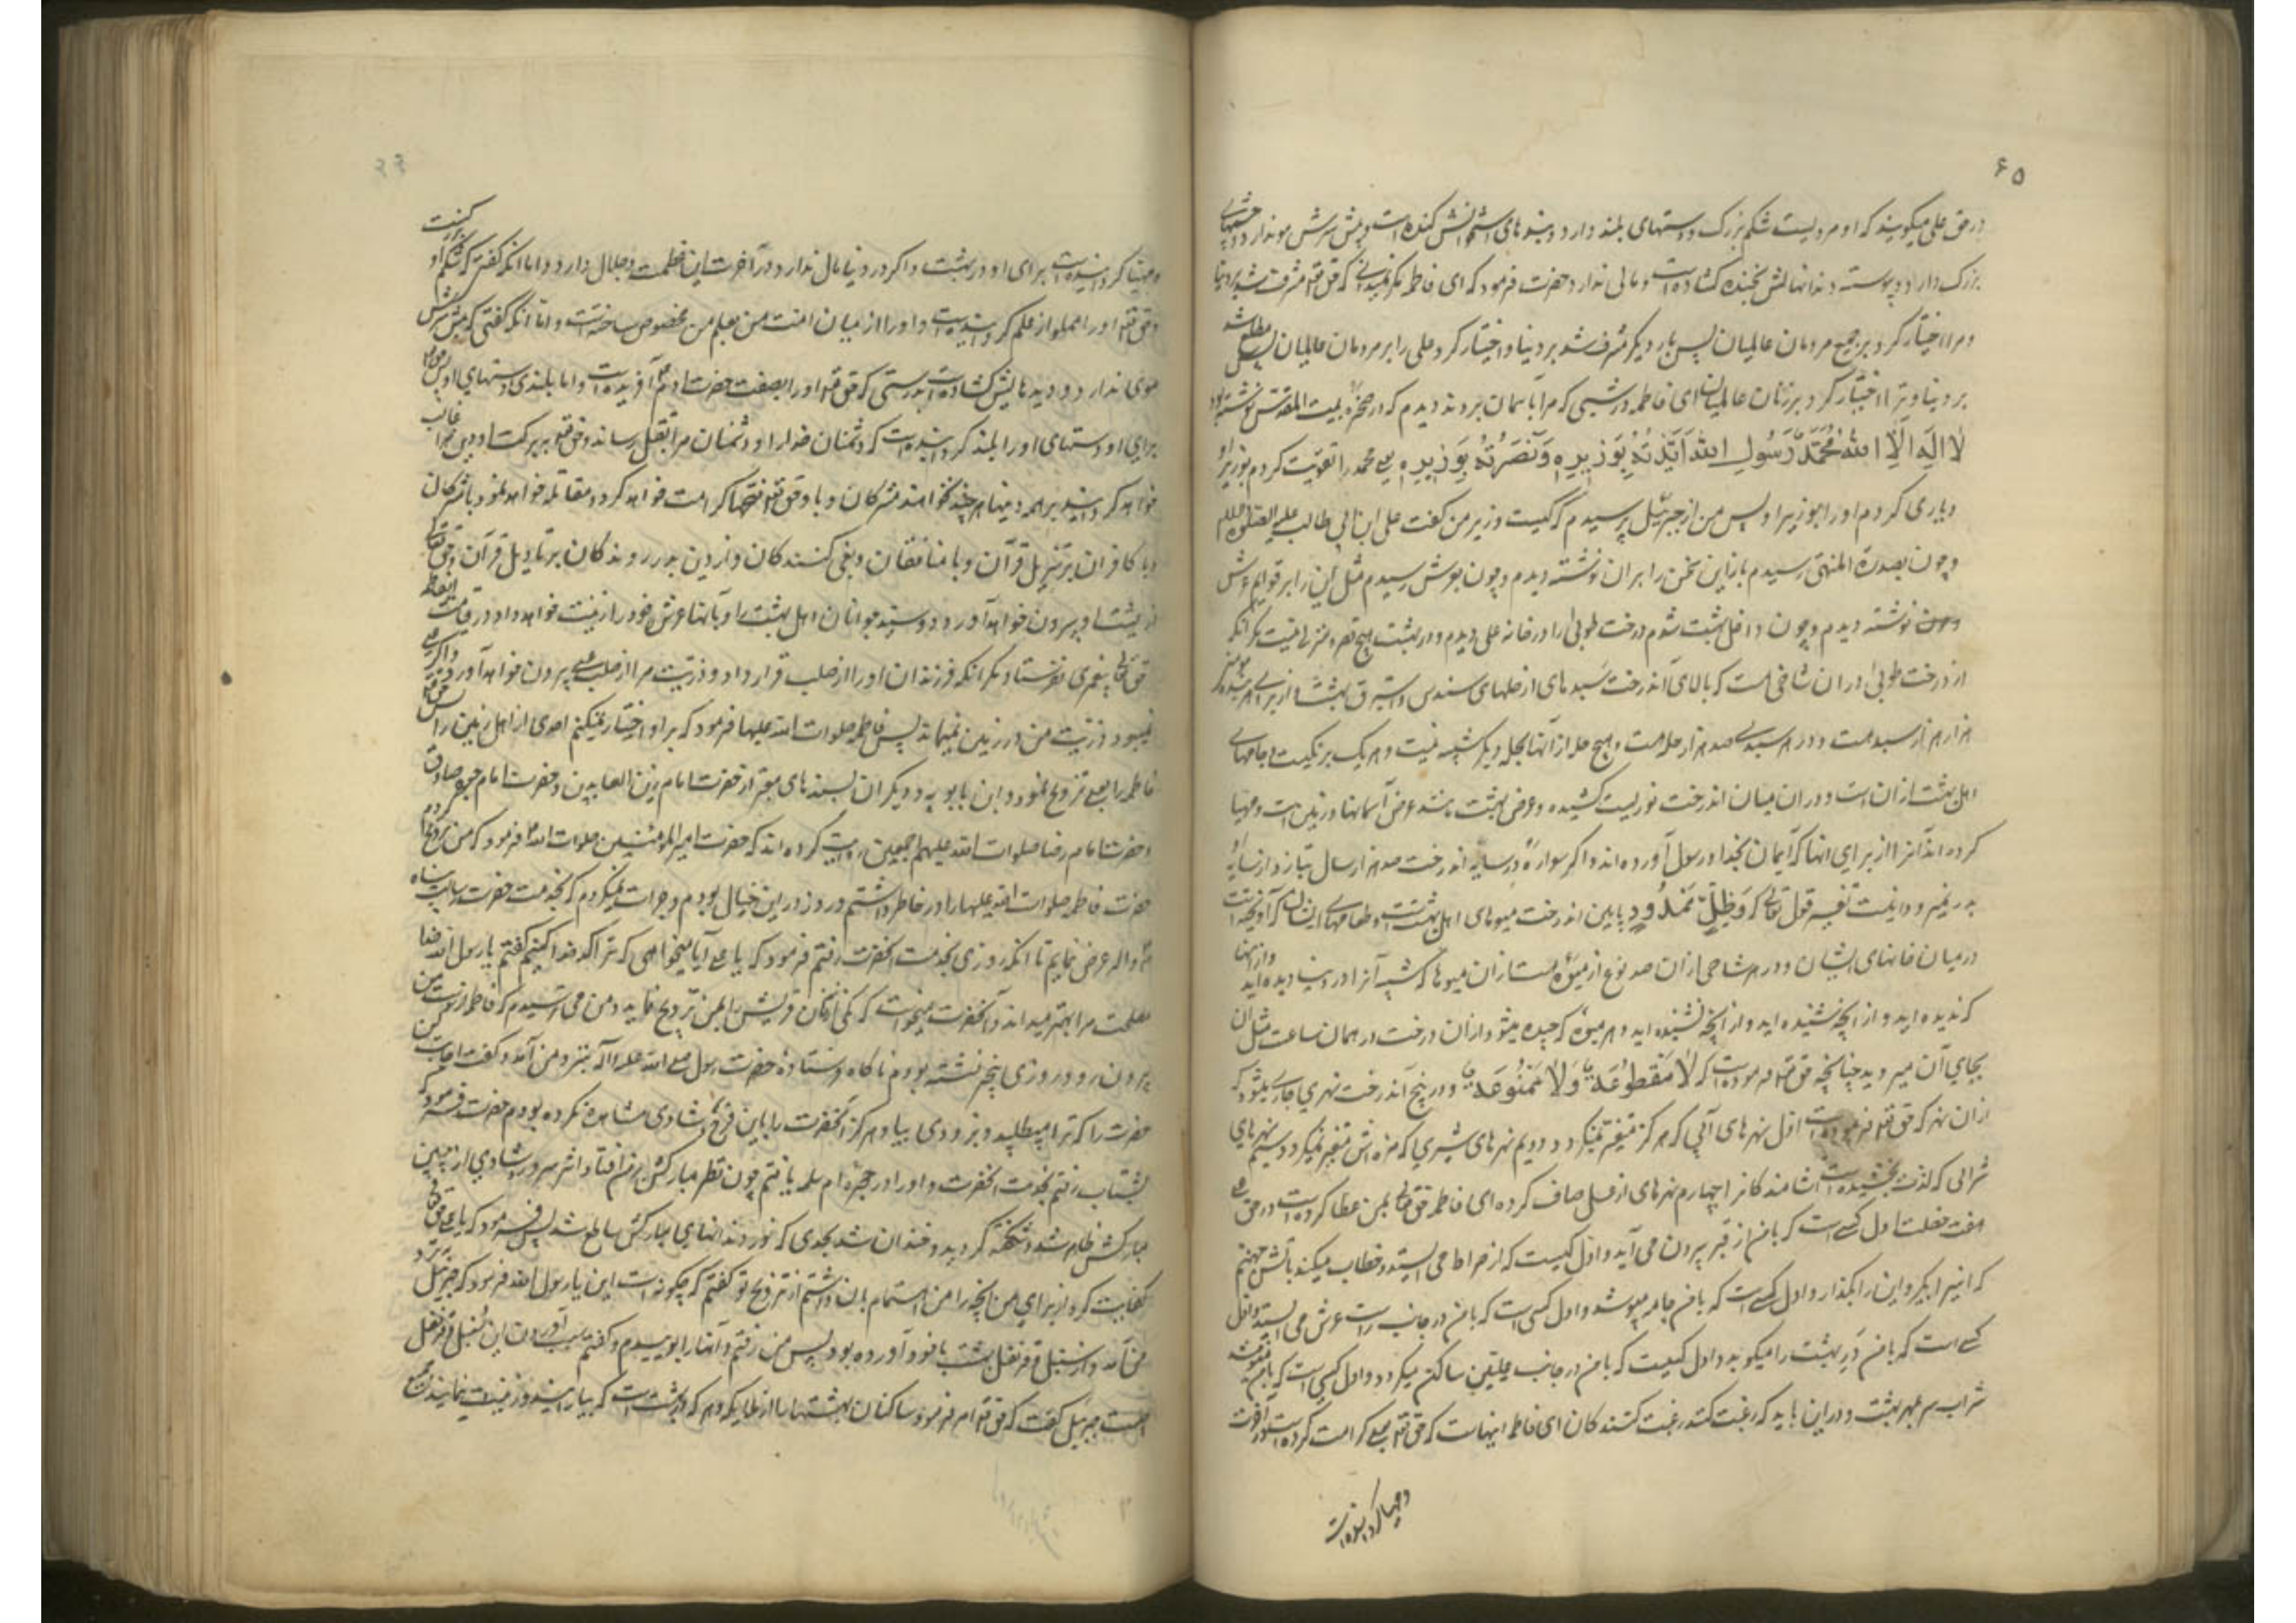 ۶۵
در حق علی میگویند که او مردیست شکم بزرگ و دستهای بلند دارد و بندهای استخوانش کنده است و پیش سرش مو ندارد و چشمهای
بزرک دارد و پیوسته دندانهایش بخنده کشاده است و مالی ندارد حضرت فرمود که ای فاطمه مکر نمیدانی که حق تعه مشرف شد بر دنیا
و مرا اختیار کرد بر جمیع مردمان عالمیان پس بار دیکر مشرف شد بر دنیا و اختیار کرد علی را بر مردمان عالمیان پس مطلع شد
بر دنیا و ترا اختیار کرد بر زنان عالمیان ای فاطمه در شبی که مرا بآسمان بردند دیدم که در صخره بیت المقدس نوشته بود
لا اله الا الله محمد رسول الله ایدته بوزیره و نصرته بوزیره یعنی محمد را تقویت کردم بوزیر او
و یاری کردم او را بوزیر او پس من از جبرئیل پرسیدم که کیست وزیر من کفت علی ابن ابی طالب علیه الصلوة والسلام
و چون بسدرة المنتهی رسیدم باز این سخن را بران نوشته دیدم و چون بعرش رسیدم مثل این را بر قوایم عرش
نوشته دیدم و چون داخل بهشت شدم درخت طوبی را در خانه علی دیدم و در بهشت هیچ قصر و منزلی نیست مکر انکه
از درخت طوبی دران شاخی هست که بالای آندرخت سبدهای از حلهای سندس و استبرق بهشت از برای هر بنده مؤمن
هزار هزار سبد هست و در هر سبدی صد هزار حله هست و هیچ حله از آنها بحله دیکر شبیه نیست و هر یک برنکیست جامهای
اهل بهشت ازان است و دران میان اندرخت نوریست کشیده و عرض بهشت مانند عرض آسمانها و زمین است و مهیا
کرده اند آنرا از برای انها که ایمان بخدا و رسول آورده اند و اکر سواره در سایه اندرخت صد هزار سال بتازد از سایه او
بدر نمیرود و اینست تفسیر قول تعالی که وَظِلٍّ مَمْدُودٍ و پایین اندرخت میوهای اهل بهشتست و طعامهای ایشان که آویخته است
درمیان خانهای ایشان و در هر شاخی ازان صد نوع از میوه هست ازان میوها که شبیه آنرا در دنیا دیده اید و ازینها
که ندیده اید و از آنچه شنیده اید و از آنچه نشنیده اید و هر میوه که چیده میشود ازان درخت در همان ساعت مثل آن
بجای آن میروید چنانچه حق تعه فرموده است که لا مقطوعة ولا ممنوعة و در بیخ آندرخت نهری جاری میشود که
ازان نهر که حق تعه فرموده است اول نهرهای آبی که هرکز متغیر نمیکردد دویم نهرهای شیری که مزه اش متغیر نمیکردد سیم نهرهای
شرابی که لذت بخشنده است آشامندکانرا چهارم نهرهای از عسل صاف کرده ای فاطمه حق تعالی بمن عطا کرده است در حق علی
هفت خصلت اول کسی است که با من از قبر بیرون می آید و اول کسیست که از صراط می ایستد و خطاب میکند بآتش جهنم
که اینرا بکیر و این را بکذار و اول کسی است که با من جامه میپوشد و اول کسی است که با من در جانب راست عرش می ایستد و اول
کسی است که با من در بهشت را میکوبد و اول کسیست که با من در جانب علیین ساکن میکردد و اول کسی است که با من مینوشد
شراب سر بمهر بهشت و دراین باید که رغبت کنند رغبت کنندکان ای فاطمه اینهاست که حق تعه بعلی کرامت کرده است در آخرت
و مهیا کردانیده است
و مهیا کردانیده است برای او در بهشت و اکر در دنیا مال ندارد در آخرت این عظمت و جلال دارد و اما انکه کفتی که شکم او بزرکست
حق تعه او را مملو از علم کردانیده است و او را از میان امت من بعلم من مخصوص ساخته است و اما آنکه کفتی که پیش سرش
موی ندارد و دیدهایش کشاده است بدرستی که حق تعه او را بصفت حضرت آدم آفریده است و اما بلندی دستهای او پس حق تعه
برای او دستهای او را بلند کردانیده است که دشمنان خدا را و دشمنان مرا بقتل رساند و حق تعه ببرکت او دین مرا غالب
خواهد کردانید بر همه دینها هر چند نخواهند مشرکان و باو حق تعه فتحها کرامت خواهد کرد و مقاتله خواهد نمود با مشرکان
و با کافران بر تنزیل قرآن و با منافقان و بغی کنندکان و از دین بدر روندکان بر تاویل قرآن و حق تعالی
از پشت او بیرون خواهد آورد دو سید جوانان اهل بهشت را و بآنها عرش خود را زینت خواهد داد در قیامت
حق تعالی پیغمبری نفرستاد مکر انکه فرزندان او را از صلب او قرار داد و ذریت مرا از صلب علی بیرون خواهد آورد و اکر علی
نمیبود ذریت من در زمین نمیماند پس فاطمه صلوات الله علیها فرمود که بر او اختیار نمیکنم احدی از اهل زمین را
فاطمه را بعلی تزویج نمود و ابن بابویه و دیکران بسندهای معتبر از حضرت امام زین العابدین و حضرت امام جعفر صادق
و حضرت امام رضا صلوات الله علیهم اجمعین روایت کرده اند که حضرت امیر المؤمنین صلوات الله فرمود که من تزویج
حضرت فاطمه صلوات الله علیها را در خاطر داشتم و روز در این خیال بودم و جرات نمیکردم که بخدمت حضرت رسالت پناه
و آله عرض نمایم تا انکه روزی بخدمت انحضرت رفتم فرمود که یا علی آیا میخواهی که ترا کدخدا کنم کفتم یا رسول الله خدا
مصلحت مرا بهتر میداند و آنحضرت میخواست که یکی از زنان قریش را بمن تزویج نماید و من می ترسیدم که فاطمه از دست من
بیرون رود و روزی بیخبر نشسته بودم ناکاه فرستاده حضرت رسول صلی الله علیه و اله بنزد من آمد و کفت اجابت کن
حضرت را که ترا میطلبد و بزودی بیا و هرکز آنحضرت را باین فرح و شادی مشاهده نکرده بودم حضرت فرمود که
بشتاب رفتم بخدمت انحضرت و او را در حجره ام سلمه یافتم چون نظر مبارکش بر من افتاد اثر سرور و شادی از جبین
مبارکش ظاهر شد و شکفته کردید و خندان شد بحدی که نور دندانهای مبارکش ساطع شد پس فرمود که یا علی حق تعالی
کفایت کرد از برای من آنچه را من اهتمام بان داشتم از تزویج تو کفتم که چکونه است این یا رسول الله فرمود که جبرئیل بنزد
من آمد و از سنبل و قرنفل بهشت با خود آورده بود پس من رفتم و آنها را بوییدم و کفتم سبب آوردن این سنبل و قرنفل
چیست جبرئیل کفت که حق تعه امر فرمود ساکنان بهشتها را از ملایکه و هر که در بهشت است که بیارایند و زینت نمایند جمیع